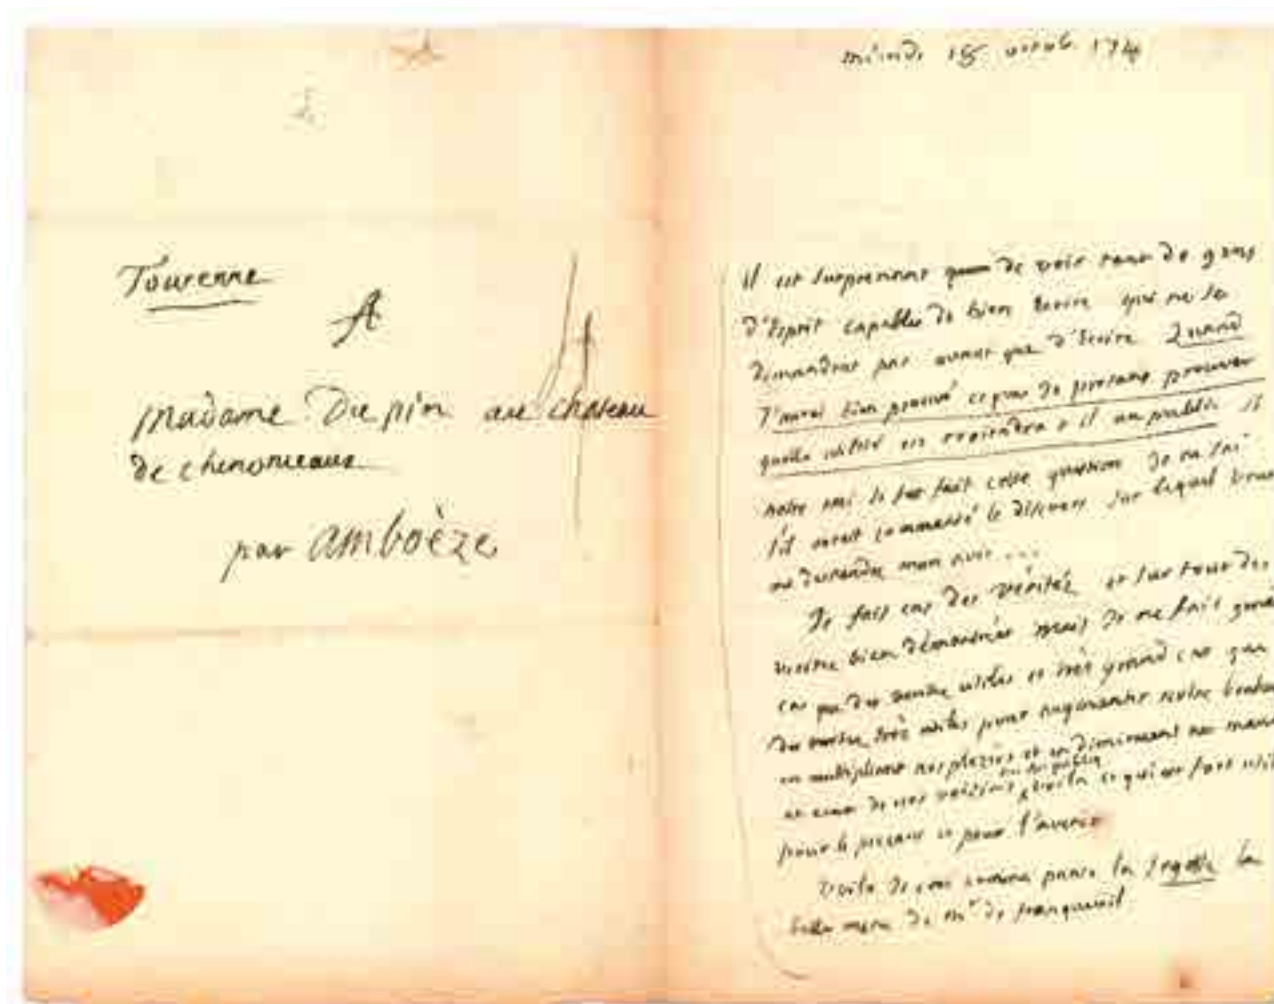 Tourenne
A
Madame Du pin au chateau
de chenonceaux
par amboèze
15 octob. 174
il est surprenant de voir tant de gens
d'Esprit capables de bien ecrire qui ne se
demandent par avant que d'Ecrire Quand
J'aurai bien prouvé ce que je pretans prouver
quelle utilité en reviendra t il au public si
notre ami se fut fait cette question je ne sai
s'il auroit commancé le discours sur lequel vous
me demandez mon avis ...
Je fais cas des vérités et sur tout des
vérités bien démontrées mais je ne fais
cas que des vérités utiles et très grand cas que
des vérités très utiles pour augmenter notre
en multipliant nos plezirs et en diminuant nos maux
et ceux de nos voizins voila ce qui est fort
pour le prezant et pour l'avenir
voila come panse la
belle mere de Mr de francueil